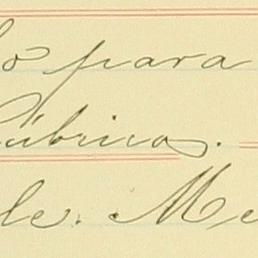 lo para
úbrica.
le. Me